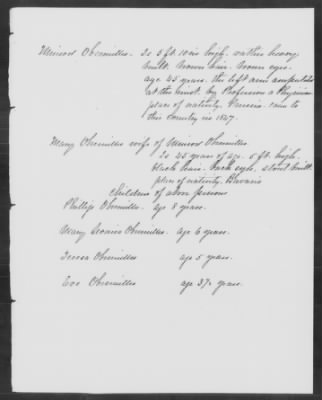 Meinrod Obermiller. Is 5 ft. 10 in high. rather heavy
built. brown hair. brown eyes.
age 45 years. the left arm amputated
at the by Profession a Physician
place of nativity. came to
this Country in 1847.
Mary Obermiller wife of Meinrod Obermiller.
Is 45 years of age. 5 ft. high.
black hair. dark eyes, stout built.
place of nativity. Bavaria
Children of above persons
Phillip Obermiller. age 8 years.
Mary Obermiller. age 6 years.
Teresa Obermiller age 5 years.
Eve Obermiller age 3½ years.